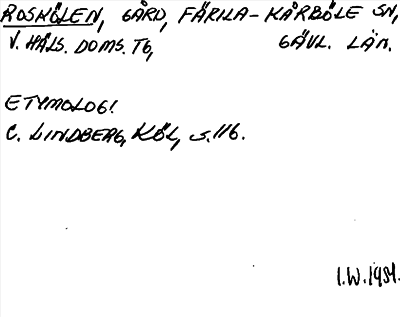 ROSKÖLEN, GÅRD, FÄRILA-KÅRBÖLE SN,
V. HÄLS. DOMS. TG, GÄVL. LÄN.
ETYMOLOGI
C. LINDBERG, KÖL, s. 116.
I.W. 1984.